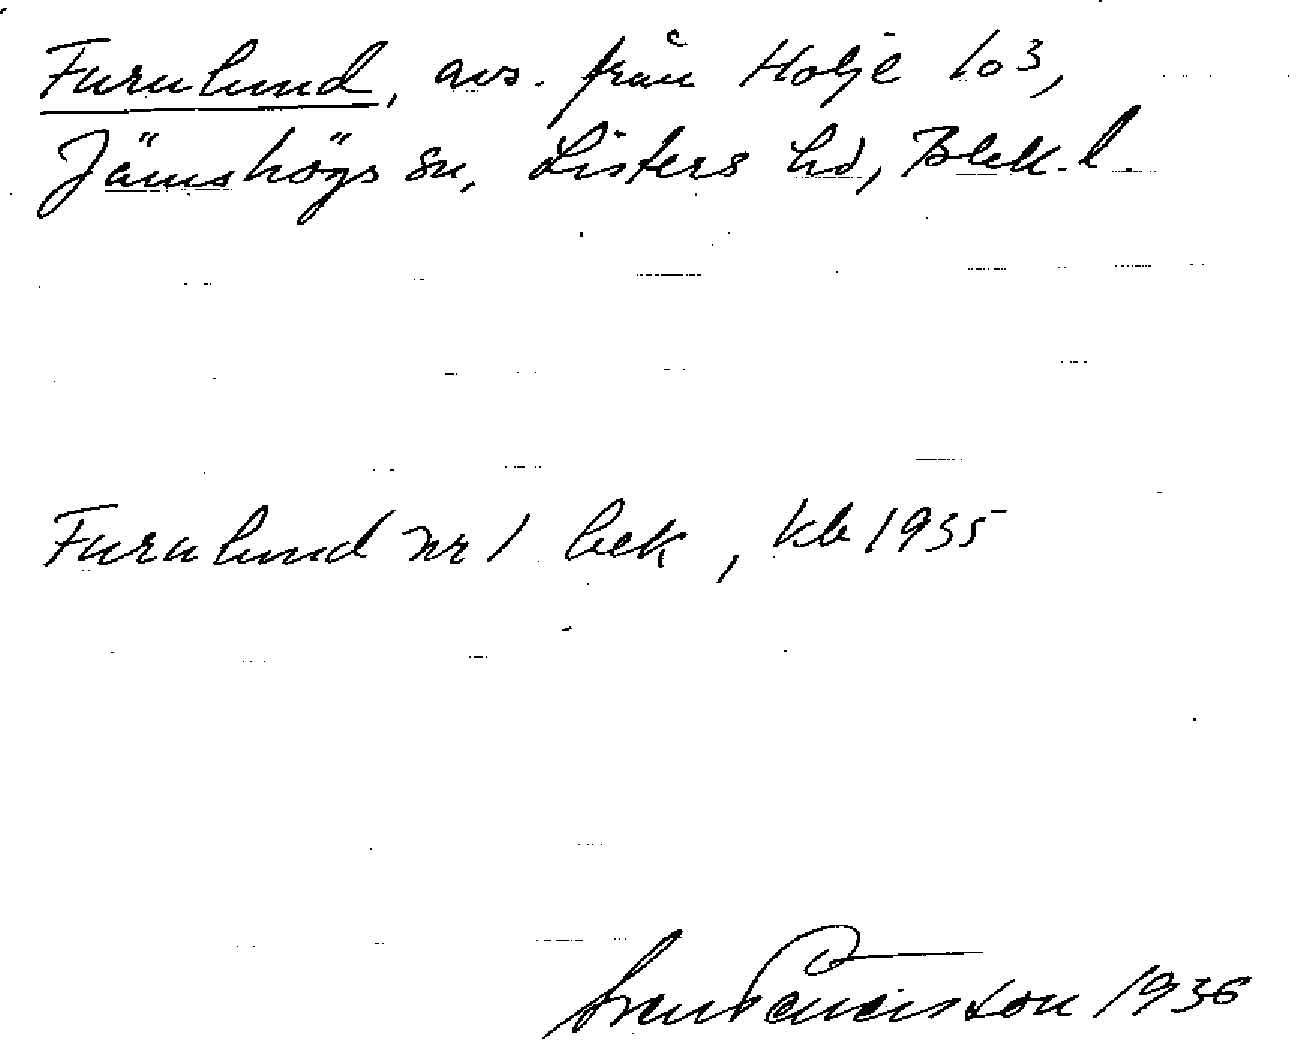 Furulund, avs. från Holje 1o3,
Jämshögs sn, Listers hd, Blek. l.
Furulund nr 1 bek, kb 1935
1936